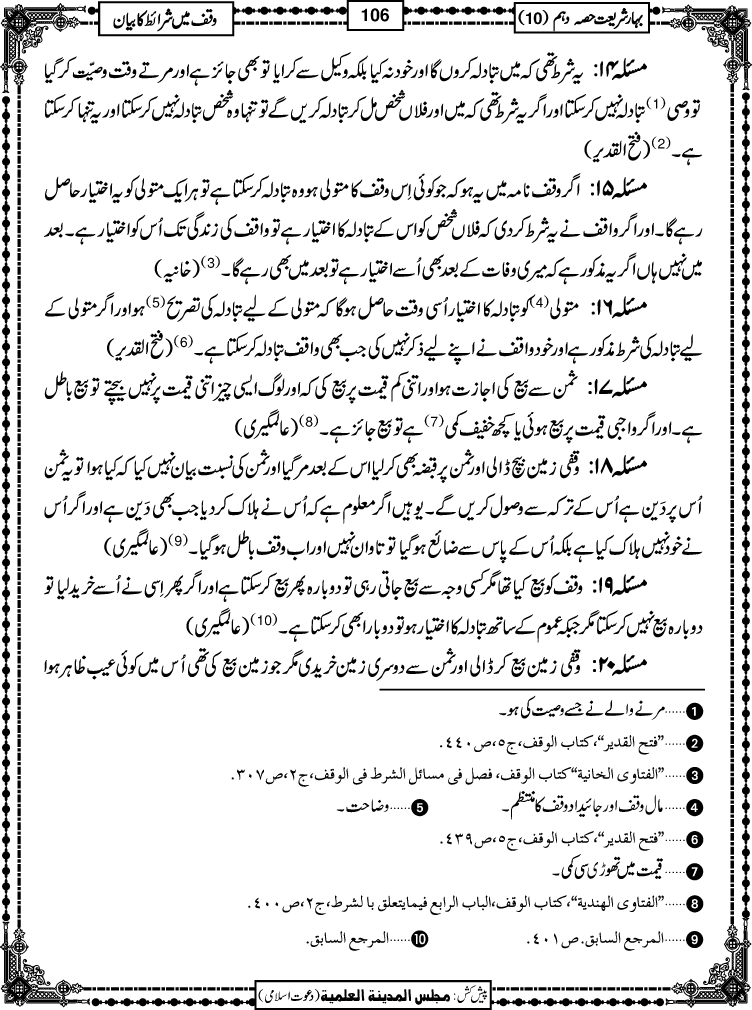 بہارِ شریعت حصہ دہم (10)
106
وقف میں شرائط کا بیان
مسئلہ ۱۴: یہ شرط تھی کہ میں تبادلہ کروں گا اور خود نہ کیا بلکہ وکیل سے کرایا تو بھی جائز ہے اور مرتے وقت وصیّت کر گیا
تو وصی(1) تبادلہ نہیں کر سکتا اور اگر یہ شرط تھی کہ میں اور فلاں شخص مل کر تبادلہ کریں گے تو تنہا وہ شخص تبادلہ نہیں کر سکتا اور یہ تنہا کر سکتا
ہے۔(2) (فتح القدیر)
مسئلہ ۱۵: اگر وقف نامہ میں یہ ہو کہ جو کوئی اِس وقف کا متولی ہو وہ تبادلہ کر سکتا ہے تو ہر ایک متولی کو یہ اختیار حاصل
رہے گا۔ اور اگر واقف نے یہ شرط کر دی کہ فلاں شخص کو اس کے تبادلہ کا اختیار ہے تو واقف کی زندگی تک اُس کو اختیار ہے۔ بعد
میں نہیں ہاں اگر یہ مذکور ہے کہ میری وفات کے بعد بھی اُسے اختیار ہے تو بعد میں بھی رہے گا۔(3) (خانیہ)
مسئلہ ۱۶: متولی(4) کو تبادلہ کا اختیار اُسی وقت حاصل ہوگا کہ متولی کے لیے تبادلہ کی تصریح(5) ہو اور اگر متولی کے
لیے تبادلہ کی شرط مذکور ہے اور خود واقف نے اپنے لیے ذکر نہیں کی جب بھی واقف تبادلہ کر سکتا ہے۔(6) (فتح القدیر)
مسئلہ ۱۷: ثمن سے بیع کی اجازت ہو اور اتنی کم قیمت پر بیع کی کہ اور لوگ ایسی چیز اتنی قیمت پر نہیں بیچتے تو بیع باطل
ہے۔ اور اگر واجبی قیمت پر بیع ہوئی یا کچھ خفیف کمی(7) ہے تو بیع جائز ہے۔(8) (عالمگیری)
مسئلہ ۱۸: وقفی زمین بیچ ڈالی اور ثمن پر قبضہ بھی کر لیا اس کے بعد مر گیا اور ثمن کی نسبت بیان نہیں کیا کہ کیا ہوا تو یہ ثمن
اُس پر دَین ہے اُس کے ترکہ سے وصول کریں گے۔ یوہیں اگر معلوم ہے کہ اُس نے ہلاک کر دیا جب بھی دَین ہے اور اگر اُس
نے خود نہیں ہلاک کیا ہے بلکہ اُس کے پاس سے ضائع ہو گیا تو تاوان نہیں اور اب وقف باطل ہو گیا۔(9) (عالمگیری)
مسئلہ ۱۹: وقف کو بیع کیا تھا مگر کسی وجہ سے بیع جاتی رہی تو دوبارہ پھر بیع کر سکتا ہے اور اگر پھر اِسی نے اُسے خرید لیا تو
دوبارہ بیع نہیں کر سکتا مگر جبکہ عموم کے ساتھ تبادلہ کا اختیار ہو تو دوبارا بھی کر سکتا ہے۔(10) (عالمگیری)
مسئلہ ۲۰: وقفی زمین بیع کر ڈالی اور ثمن سے دوسری زمین خریدی مگر جو زمین بیع کی تھی اُس میں کوئی عیب ظاہر ہوا
1......مرنے والے نے جسے وصیت کی ہو۔
2......”فتح القدیر“، کتاب الوقف، ج۵، ص۴۴۰.
3......”الفتاوی الخانیة“ کتاب الوقف، فصل فی مسائل الشرط فی الوقف، ج۲، ص۳۰۷.
4......مال وقف اور جائیداد وقف کا منتظم۔ 5......وضاحت۔
6......”فتح القدیر“، کتاب الوقف، ج۵، ص۴۳۹.
7......قیمت میں تھوڑی سی کمی۔
8......”الفتاوی الهندیة“، کتاب الوقف، الباب الرابع فیما یتعلق با لشرط، ج۲، ص۴۰۰.
9......المرجع السابق. ص۴۰۱. 10......المرجع السابق.
پیش کش: مجلس المدینة العلمیة (دعوتِ اسلامی)